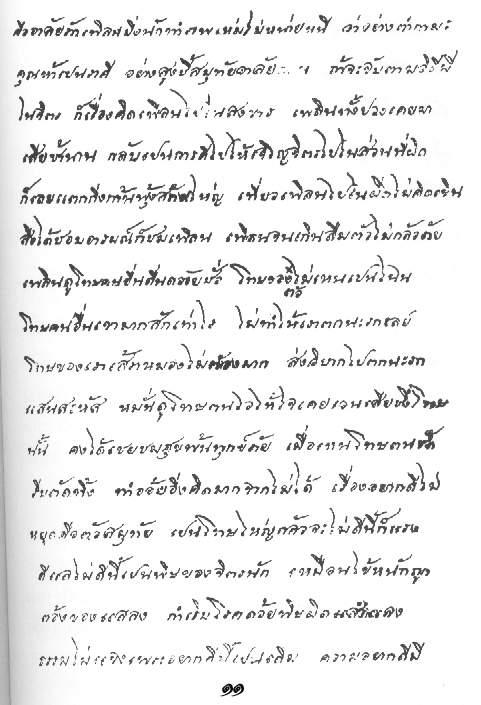 คืออาลัยถ้าเพลินยิ่งนักทำภพใหม่ไม่หน่ายหนี ว่าอย่างต่ำกามะ
คุณห้าเปนราคี อย่างสูงชี้สมุทัยอาลัย ถ้าจะจับตามวิธีมี
ในจิตร ก็เรื่องคิดเพลินไปในสงขาร เพลินทั้งปวงเคยมา
เสียช้านาน กลับเปนการดีไปให้เจริญจิตรไปในส่วนที่ผิด
ก็เลยแตกกิ่งก้านฟุ้งส้านใหญ่ เที่ยวเพลินไปในผิดไม่คิดเขิน
สิ่งใดชอบอารมณ์ก็ชมเพลิน เพลินจนเกินลืมตัวไม่กลัวภัย
เพลินดูโทษคนอื่นดื่นด้วยชั่ว โทษของตัวไม่เหนเปนไฉน
โทษคนอื่นเขามากสักเท่าไร ไม่ทำให้เราตกนะรกเลย
โทษของเราเส้าหมองไม่ต้องมาก ส่งวิบากไปตกนะรก
แสนสะหัส หมั่นดูโทษตนไว้ให้ใจเคยเวนเสียซึ่งโทษ
นั้น คงได้เชยชมสุขพ้นทุกข์ภัย เมื่อเหนโทษตนชัด
รีบตัดทิ้ง ทำอ้อยอิ่งคิดมากจากไม่ได้ เรื่องอยากดีไม่
หยุดคือตัวสมุทัย เปนโทษใหญ่กลัวจะไม่ดีนี้ก็แรง
ดีแลไม่ดีนี้เปนพิษของจิตรนัก เหมือนไข้หนักถูก
ต้องของแสลง กำเริบโรคด้วยพิษผิดสำแลง
ธรรมไม่แจ้งเพราะอยากดีนี้เปนเดิม ความอยากดีมี
๑๑